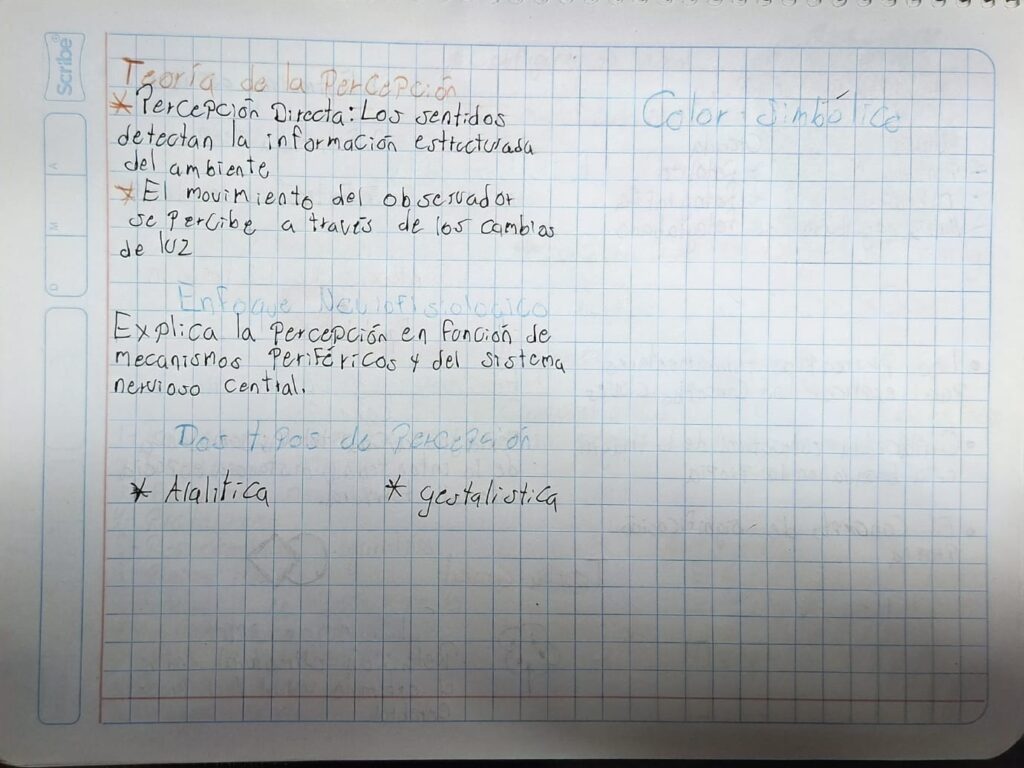 Scribe
Teoría de la Percepción
* Percepción Directa: Los sentidos
detectan la información estructurada
del ambiente
* El movimiento del observador
se percibe a través de los cambios
de luz
Enfoque Neurofisiologico
Explica la percepción en función de
mecanismos periféricos y del sistema
nervioso central.
Dos tipos de Percepción
* Alalitica * gestalistica
Color Simbólico